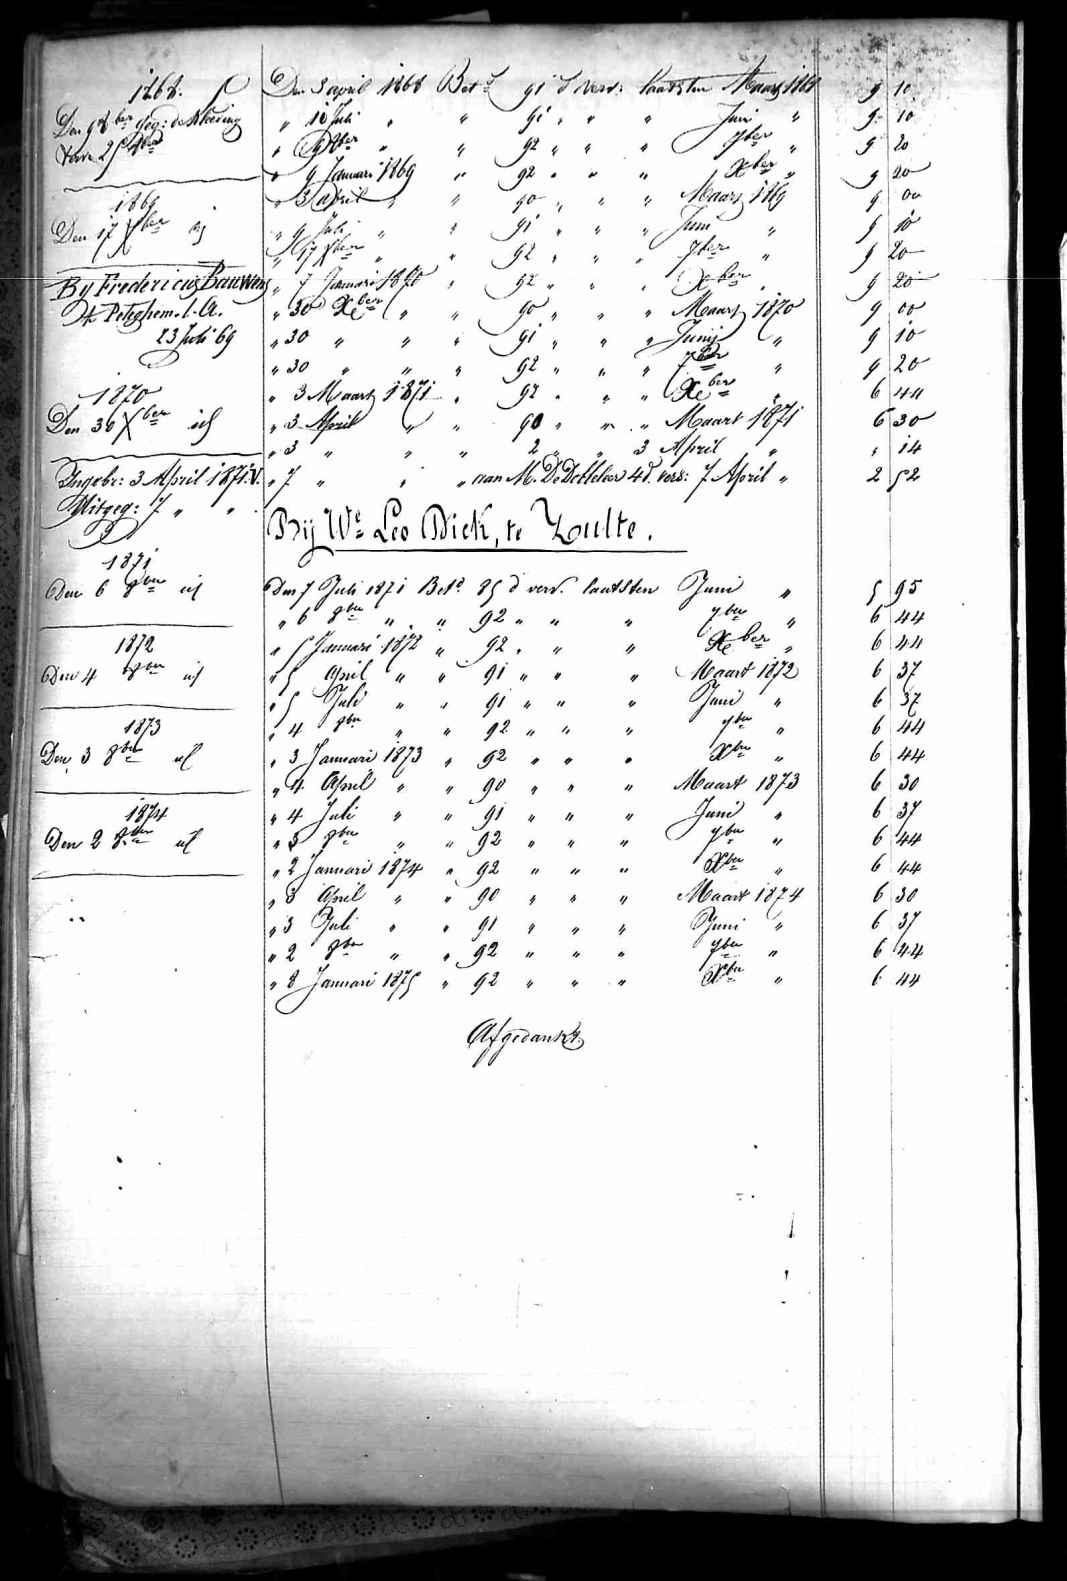 1868.
Den 9 8ber geg: de kleeding
voor 25
1869
Den 17 Xber
By Fredericus Bauwens
te Peteghem. l. A.
23 Juli 69
1870
Den 30 Xber id
Ingebr: 3 April 1871.
Uitgeg: 7 " "
1871
Den 6 8ber id
1872
Den 4 8ber id
1873
Den 3 8ber id
1874
Den 2 8ber id
Den 3 april 1868 Betd 91 d verv: laatsten Maart 1868 9 10
" 10 Juli " " 91 " " " Juni " 9 10
" 9 8ber " " 92 " " " 7ber " 9 20
" 9 Januari 1869 " 92 " " " Xber " 9 20
" 3 april " " 90 " " " Maart 1869 9 00
" 9 Juli " " 91 " " " Juni " 9 10
" 17 Xber " " 92 " " " 7ber " 9 20
" 7 Januari 1870 " 92 " " " Xber " 9 20
" 30 Xber " " 90 " " " Maart 1870 9 00
" 30 " " " 91 " " " Junij " 9 10
" 30 " " " 92 " " " 7ber " 9 20
" 3 Maart 1871 " 92 " " " Xber " 6 44
" 3 April " " 90 " " " Maart 1871 6 30
" 3 " " " 2 " " 3 April " " 14
" 7 " " " aan M. De Detteleer 4 d. vers: 7 April " 2 52
Bij We Leo Dick, te Zulte.
Den 7 Juli 1871 Betd 85 d verv. laatsten Juni " 5 95
" 6 8ber " " 92 " " " 7ber " 6 44
" 5 Januari 1872 " 92 " " " Xber " 6 44
" 5 April " " 91 " " " Maart 1872 6 37
" 5 Juli " " 91 " " " Juni " 6 37
" 4 8ber " " 92 " " " 7ber " 6 44
" 3 Januari 1873 " 92 " " " Xber " 6 44
" 4 April " " 90 " " " Maart 1873 6 30
" 4 Juli " " 91 " " " Juni " 6 37
" 3 8ber " " 92 " " " 7ber " 6 44
" 2 Januari 1874 " 92 " " " Xber " 6 44
" 3 April " " 90 " " " Maart 1874 6 30
" 3 Juli " " 91 " " " Juni " 6 37
" 2 8ber " " 92 " " " 7ber " 6 44
" 8 Januari 1875 " 92 " " " Xber " 6 44
Afgedankt.